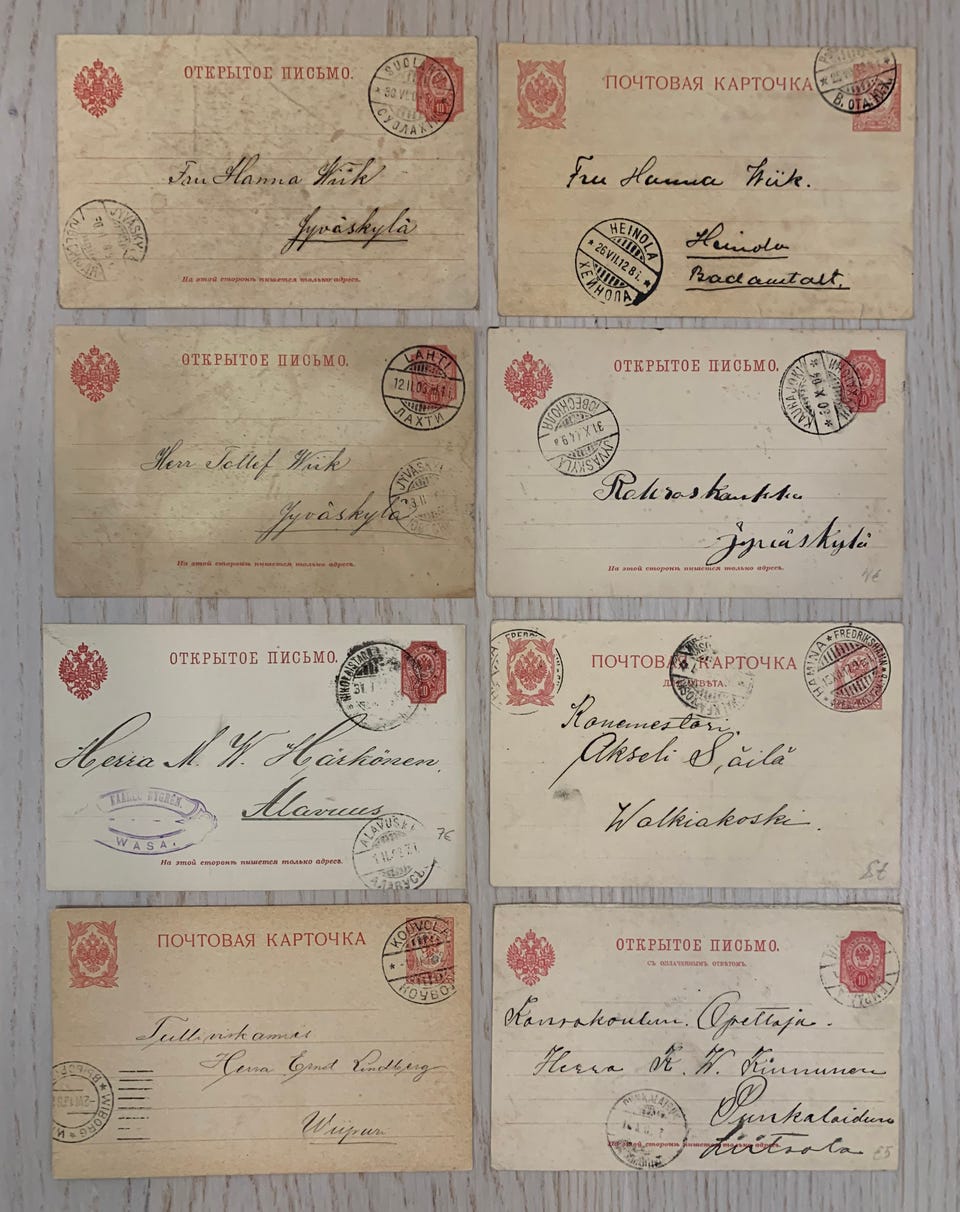 ОТКРЫТОЕ ПИСЬМО.
SUOLAHTI
30.VI.0
СУОЛАХТИ
10
Fru Hanna Wiik
Jyväskylä
JYVÄSKYLÄ
На этой сторонѣ пишется только адресъ.
ПОЧТОВАЯ КАРТОЧКА
В. ОТД.
Fru Hanna Wiik.
HEINOLA
26 VII.12 8 i.
ХЕЙНОЛА
Heinola
Badanstalt.
ОТКРЫТОЕ ПИСЬМО.
LAHTI
12.II.03
ЛАХТИ
Herr Tollif Wiik
JYVÄSKYLÄ
Jyväskylä
На этой сторонѣ пишется только адресъ.
ОТКРЫТОЕ ПИСЬМО.
KAUHAJOKI
30 X 03
10
JYVÄSKYLÄ
31.X.
Jyväskylä
На этой сторонѣ пишется только адресъ.
4€
ОТКРЫТОЕ ПИСЬМО.
NIKOLAISTAD
31.
10
Herra M. W. Härkönen.
Alavuus
KAARLO NYGRÉN.
WASA.
ALAVUS
АЛАВУСЪ
7€
На этой сторонѣ пишется только адресъ.
ПОЧТОВАЯ КАРТОЧКА
ДЛЯ ОТВѢТА.
HAMINA * FREDRIKSHAMN
Konemestari
Akseli Säilä
Walkiakoski.
ПОЧТОВАЯ КАРТОЧКА
KOUVOLA
Tullivirkamies
Herra Ernst Lindberg
Wiipuri
WIBORG
ОТКРЫТОЕ ПИСЬМО.
СЪ ОПЛАЧЕННЫМЪ ОТВѢТОМЪ.
10
Kansakoulun Opettaja.
Herra K. W. Kinnunen
Punkalaidun
PUNKALAIDUN
На этой сторонѣ пишется только адресъ.
Liitsola
€5